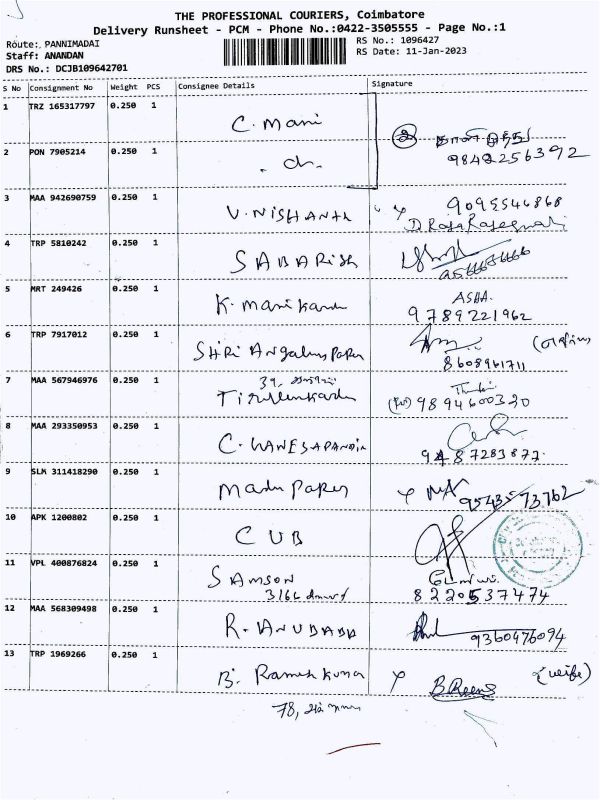 THE PROFESSIONAL COURIERS, Coimbatore
Delivery Runsheet - PCM - Phone No.:0422-3505555 - Page No.:1
Route: PANNIMADAI
RS No.: 1096427
Staff: ANANDAN
RS Date: 11-Jan-2023
DRS No.: DCJB109642701
S No Consignment No Weight PCS Consignee Details Signature
1 TRZ 165317797 0.250 1 C. Mani
2 PON 7905214 0.250 1 - do -
9842256392
3 MAA 942690759 0.250 1 V. NISHANTH 9095546868
D. RajaRajeswari
4 TRP 5810242 0.250 1 SABARISH
5 MRT 249426 0.250 1 K. Manikandan ASHA.
9789221962
6 TRP 7917012 0.250 1 SHRI Angalman Paper
8608961711
7 MAA 567946976 0.250 1 39,
9894600320
8 MAA 293350953 0.250 1 C. GANESAPANDIN
9487283877
9 SLM 311418290 0.250 1 Madu Paper
9543573762
10 APK 1200802 0.250 1 CUB
11 VPL 400876824 0.250 1 SAMSON
8220537474
12 MAA 568309498 0.250 1 R.
9360476094
13 TRP 1969266 0.250 1 B. Ramesh Kumar (wife)
78,